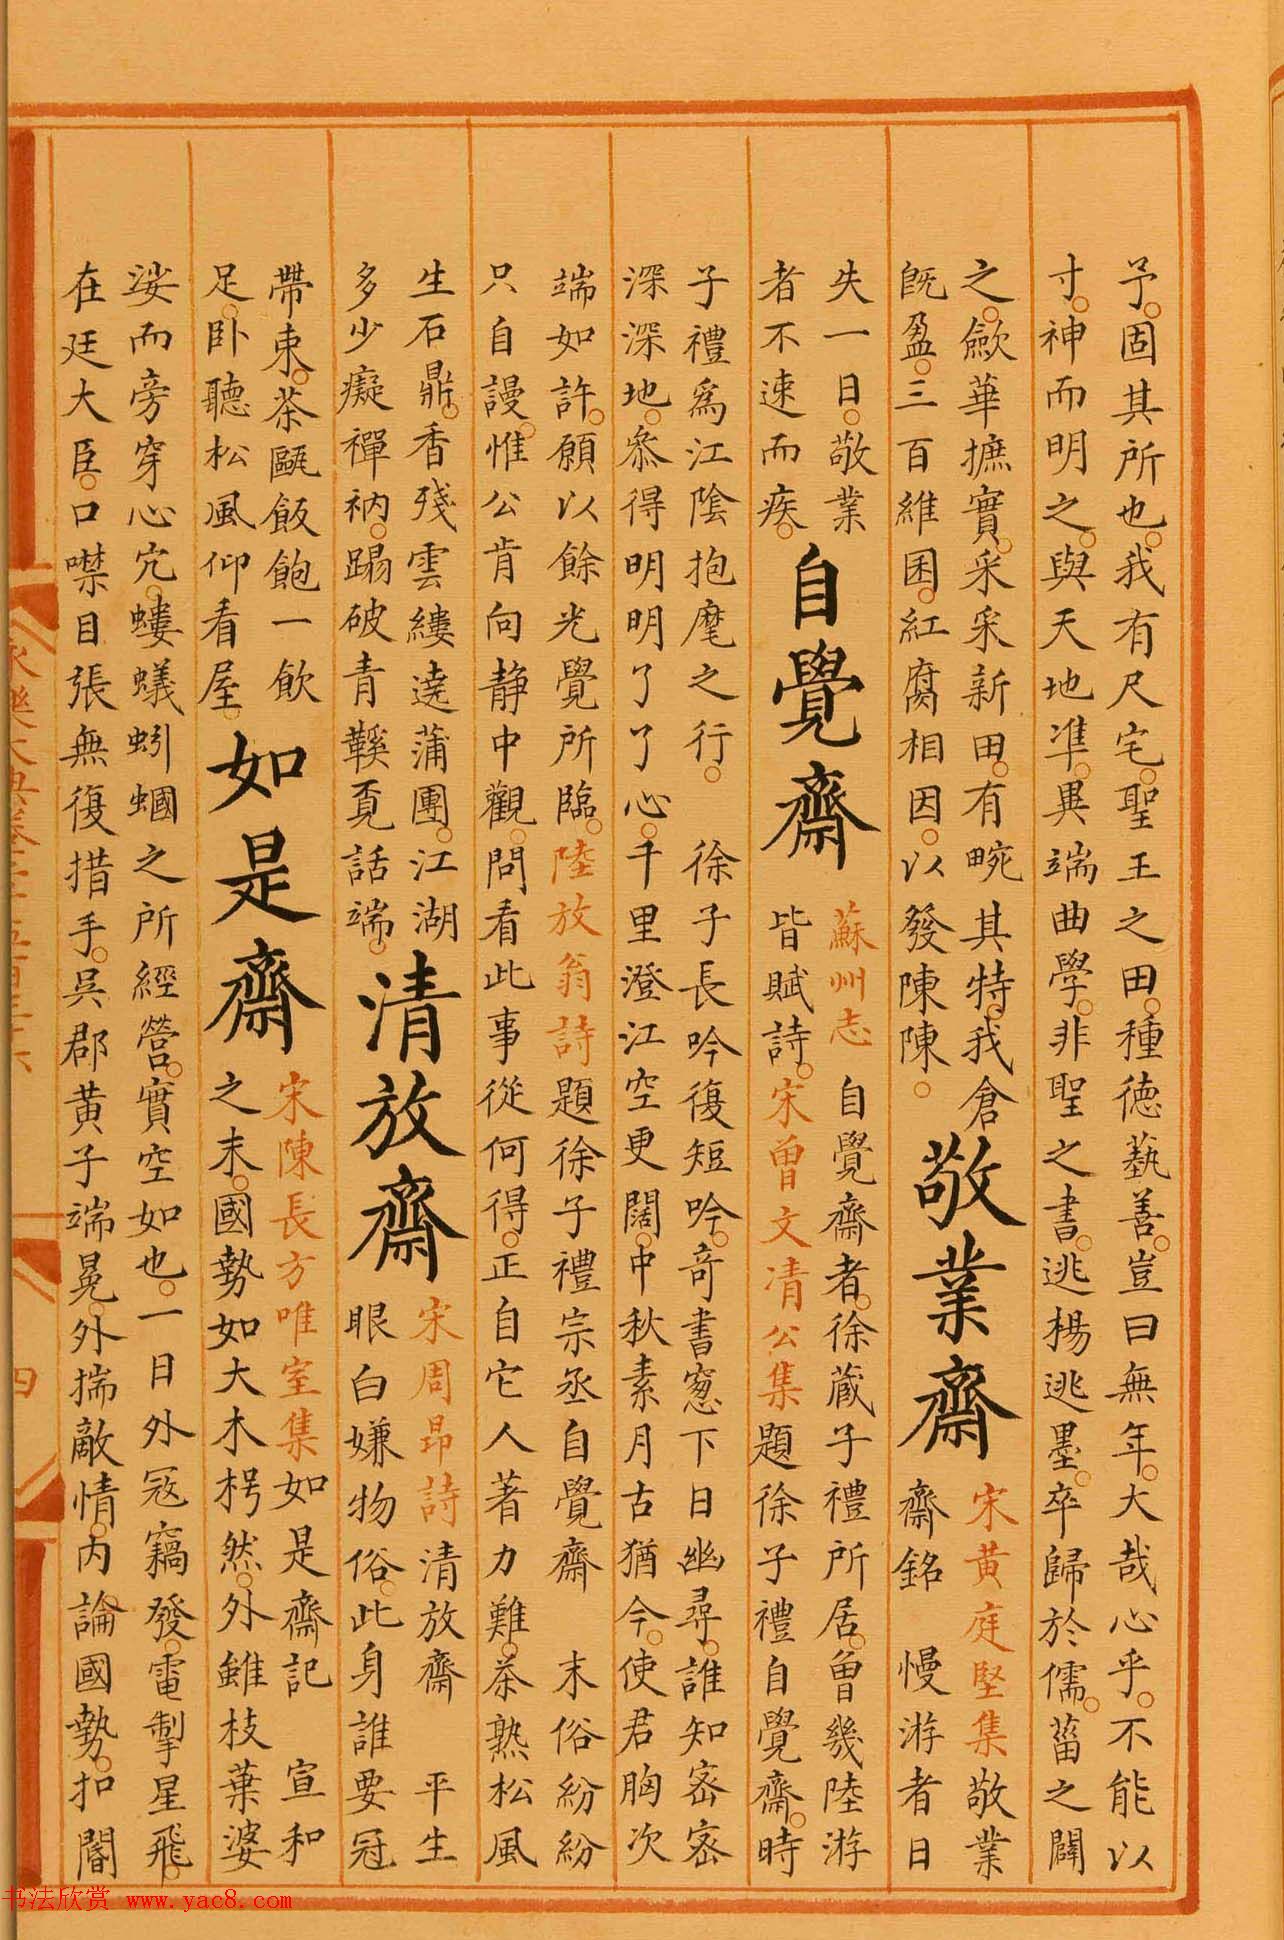 予。固其所也。我有尺宅。聖王之田。種德藝善。豈曰無年。大哉心乎。不能以
寸。神而明之。與天地準。異端曲學。非聖之書。逃楊逃墨。卒歸於儒。菑之闢
之。歛華摭實。采采新田。有畹其特。我倉
既盈。三百維囷。紅腐相因。以發陳陳。
敬業齋
宋黃庭堅集敬業
齋銘　慢游者日
失一日。敬業
者不速而疾。
自覺齋
蘇州志　自覺齋者。徐蕆子禮所居。曾幾陸游
皆賦詩。宋曾文清公集題徐子禮自覺齋。時
子禮爲江陰抱麾之行。　徐子長吟復短吟。奇書窻下日幽尋。誰知密密
深深地。叅得明明了了心。千里澄江空更闊。中秋素月古猶今。使君胸次
端如許。願以餘光覺所臨。陸放翁詩題徐子禮宗丞自覺齋　末俗紛紛
只自謾。惟公肯向静中觀。問看此事從何得。正自它人著力難。茶熟松風
生石鼎。香殘雲縷遶蒲團。江湖
多少癡禪衲。蹋破青鞵覓話端。
清放齋
宋周昂詩清放齋　平生
眼白嫌物俗。此身誰要冠
帶束。茶甌飯飽一飲
足。卧聽松風仰看屋。
如是齋
宋陳長方唯室集如是齋記　宣和
之末。國勢如大木枵然。外雖枝葉婆
娑而旁穿心宂。螻蟻蚓蟈之所經營。實空如也。一日外冦竊發。電掣星飛。
在廷大臣。口噤目張無復措手。吳郡黃子端冕。外揣敵情。內論國勢。扣閽
永樂大典卷二千五百三十六
四
书法欣赏 www.yac8.com